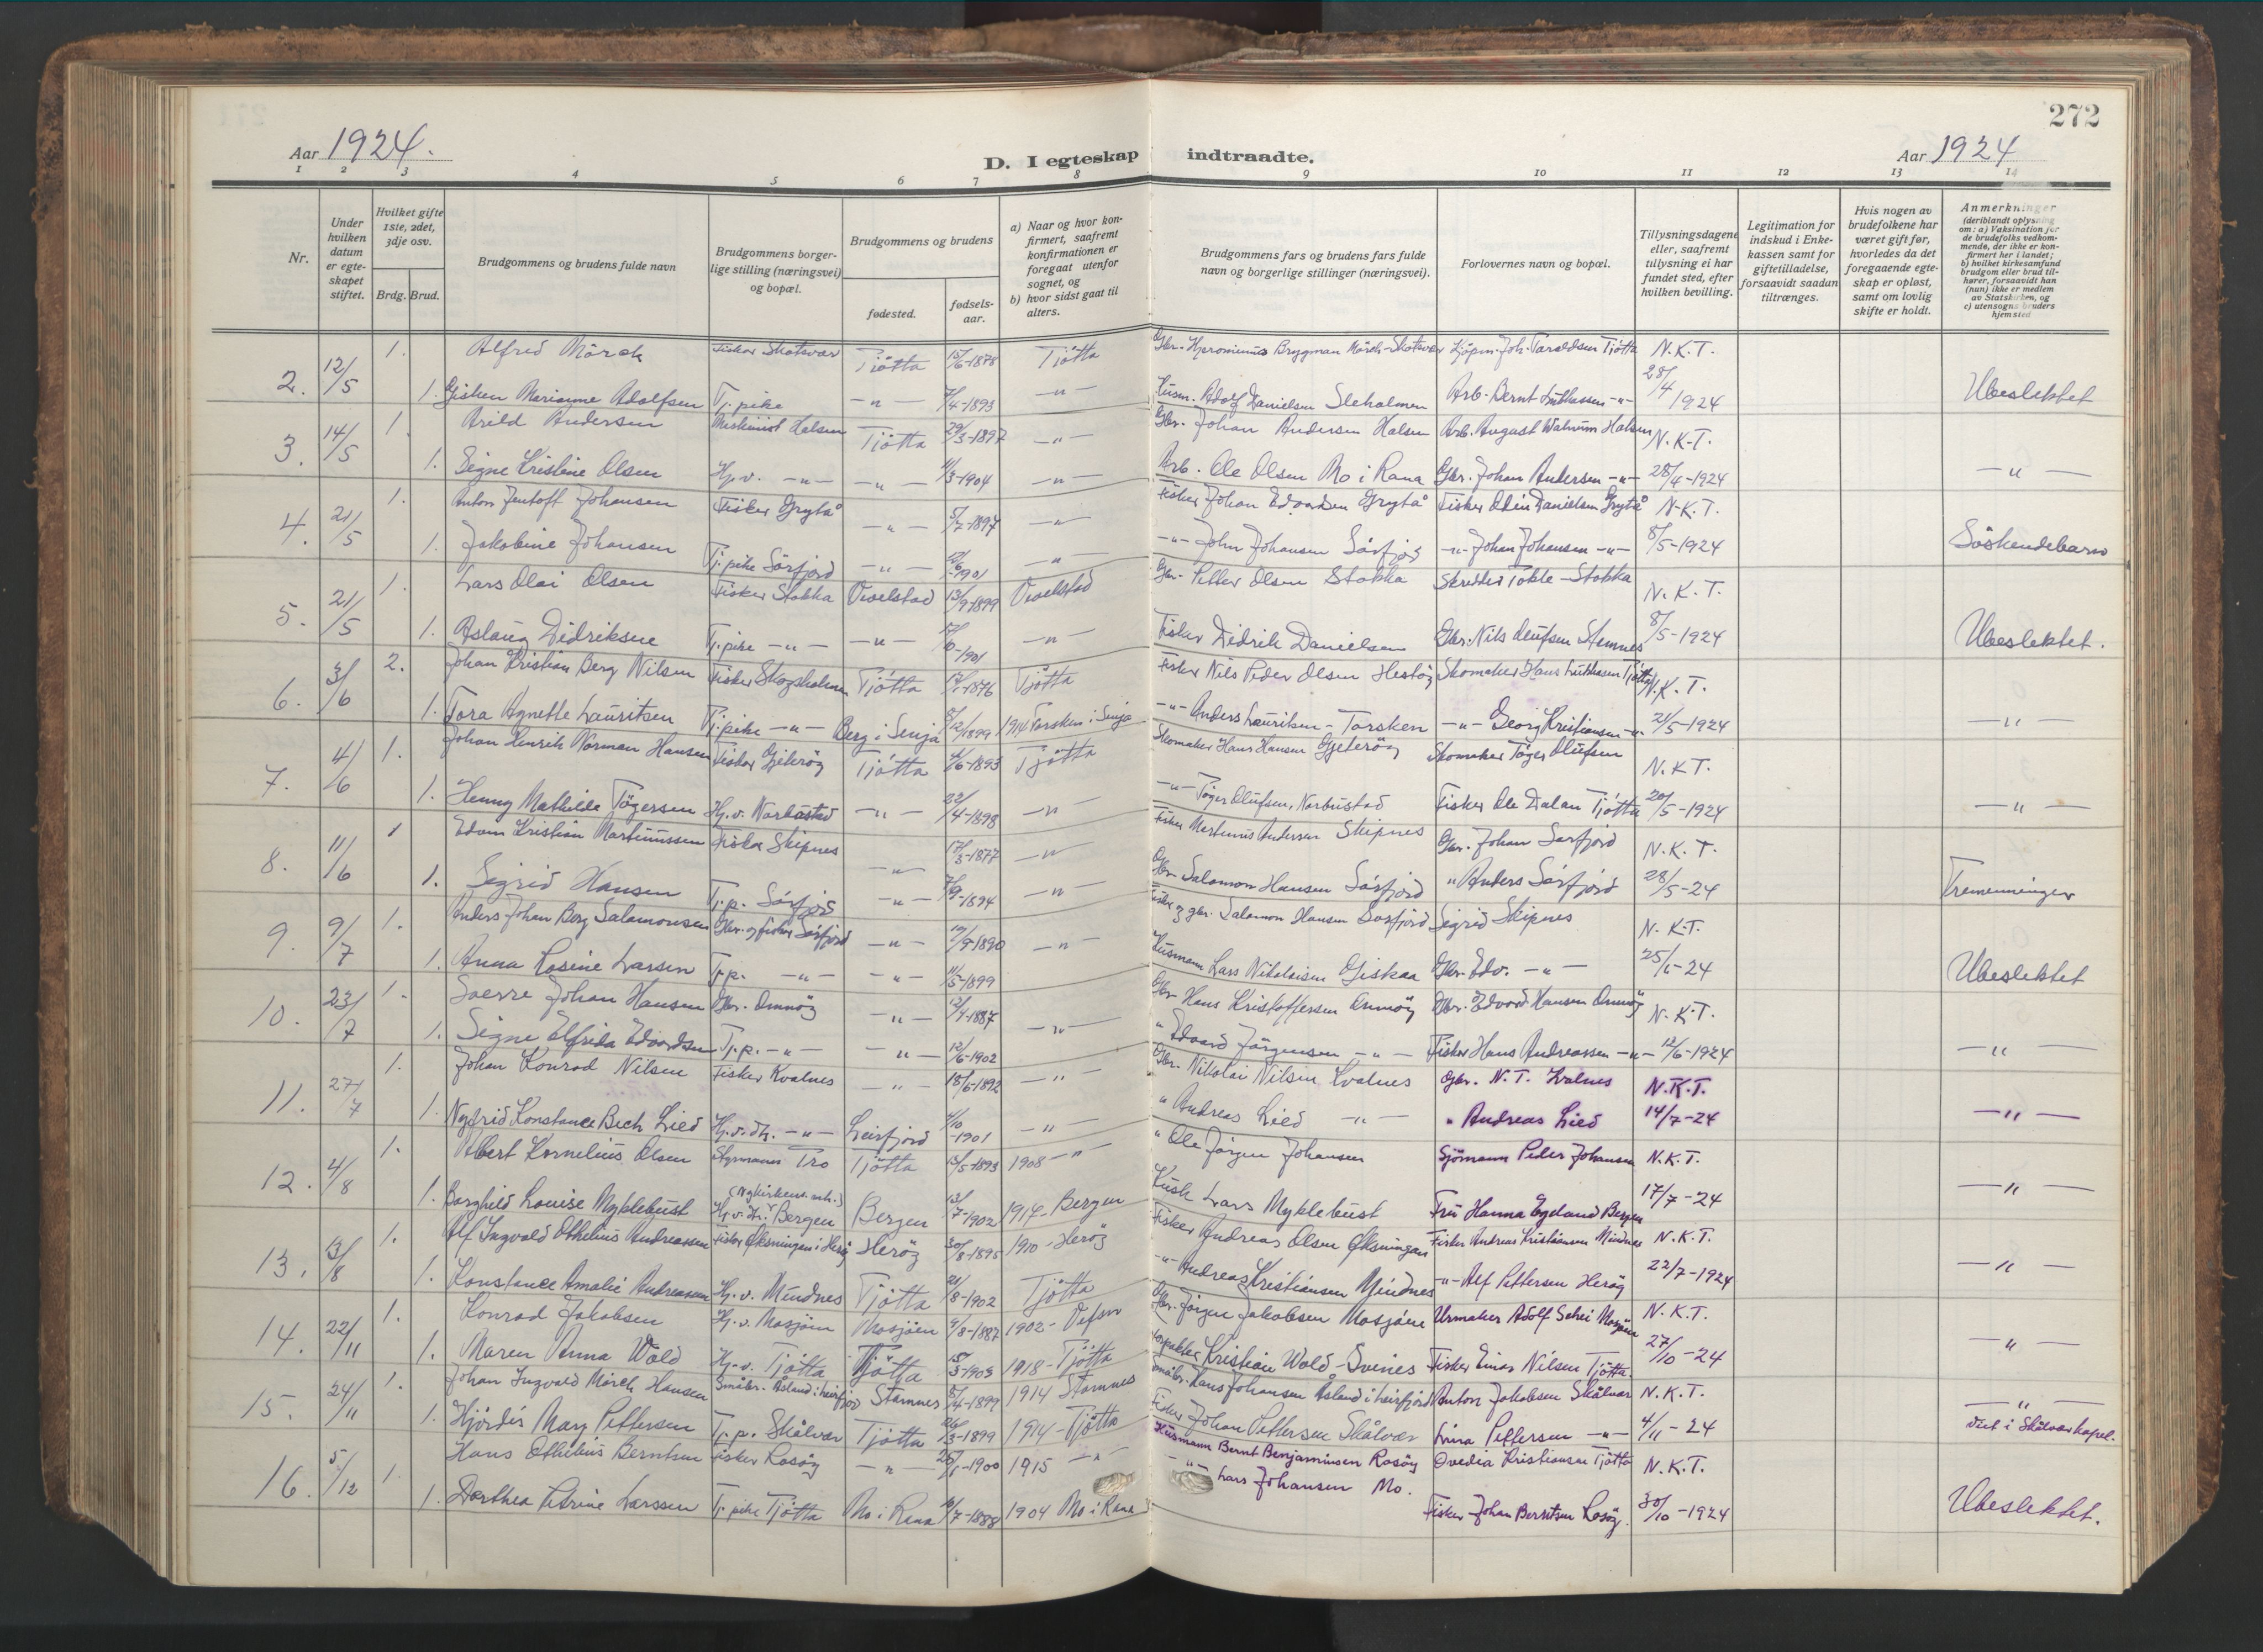 272
Aar 1924.
D. I egteskap indtraadte.
Aar 1924
1 2 3 4 5 6 7 8 9 10 11 12 13 14
Nr.
Under hvilken datum er egteskapet stiftet.
Hvilket gifte 1ste, 2det, 3dje osv.
Brdg. Brud.
Brudgommens og brudens fulde navn
Brudgommens borgerlige stilling (næringsvei) og bopæl.
Brudgommens og brudens
fødested.
fødselsaar.
a) Naar og hvor konfirmert, saafremt konfirmationen er foregaat utenfor sognet, og
b) hvor sidst gaat til alters.
Brudgommens fars og brudens fars fulde navn og borgerlige stillinger (næringsvei).
Forlovernes navn og bopæl.
Tillysningsdagene eller, saafremt tillysning ei har fundet sted, efter hvilken bevilling.
Legitimation for indskud i Enkekassen samt for giftetilladelse, forsaavidt saadan tiltrænges.
Hvis nogen av brudefolkene har været gift før, hvorledes da det foregaaende egteskap er opløst, samt om lovlig skifte er holdt.
Anmerkninger
(deriblandt oplysning om: a) Vaksination for de brudefolks vedkommende, der ikke er konfirmert her i landet; b) hvilket kirkesamfund brudgom eller brud tilhører, forsaavidt han (hun) ikke er medlem av Statskirken, og c) utensogns bruders hjemsted
2. 12/5 1. Alfred Mörch Fisker Skotsvær Tjötta 15/6-1878 Tjötta Gbr. Brygman Mörch-Skotsvær Kjöpm. Joh. Taraldsen Tjötta N.K.T.
1. Gisken Marianne Adolfsen Tj. pike -"- 7/4-1893 -"- Husm. Adolf Danielsen Sleholmen Arb. Bernt -"- 28/4 1924 Ubeslektet
3. 14/5 1. Arild Andersen Halsen Tjötta 29/3-1897 -"- Gbr. Johan Andersen Halsen Arb. August Walnum Halsen N.K.T.
1. Signe Kristine Olsen Hj.v. -"- -"- 11/3-1904 -"- Arb. Ole Olsen Mo i Rana Gbr. Johan Andersen -"- 28/4-1924 -"-
4. 21/5 1. Anton Zentoft Johansen Fisker Grytå -"- 5/7-1897 -"- Fisker Johan Edvardsen Grytå Fisker Odin Danielsen Grytå N.K.T.
1. Jakobine Johansen Tj. pike Sörfjord -"- -1901 -"- -"- John Johansen Sörfjord -"- Johan Johansen -"- 8/5-1924 Söskendebarn
5. 21/5 1. Lars Olai Olsen Fisker Stokka Vivelstad 13/9-1899 Vivelstad Gbr. Petter Olsen Stokka Skredder Tokle-Stokka N.K.T.
1. Aslaug Didriksen Tj. pike -"- -"- -1901 -"- Fisker Didrik Danielsen Gbr. Nils Olufsen Stamnes 8/5-1924 Ubeslektet.
6. 3/6 2. Johan Kristian Berg Nilsen Fisker Skogsholmen Tjötta -1876 Tjötta Fisker Nils Peder Olsen Hestöy Skomaker Hans Tjötta N.K.T.
1. Tora Agnethe Lauritsen Tj. pike -"- Berg i Senja /12/1899 1914 Torsken i Senja -"- Anders Lauritsen - Torsken -"- Georg Kristiansen -"- 21/5-1924 -"-
7. 4/6 1. Johan Henrik Norman Hansen Fisker Gjeteröy Tjötta /6-1893 Tjötta Skomaker Hans Hansen Gjeteröy Skomaker Töger Olufsen N.K.T.
1. Henny Mathilde Tögersen Hj.v. Norbustad -"- 22/4-1898 -"- -"- Töger Olufsen, Norbustad Fisker Ole Dalan Tjötta 20/5-1924 -"-
8. 11/6 1 Edvin Kristian Martinussen Fisker Skipnes -"- 17/3-1877 -"- Fisker Martinus Andersen Skipnes Gbr. Johan Sörfjord N.K.T.
1. Sigrid Hansen Tj.p. Sörfjord -"- 7/9-1894 -"- Gbr. Salomon Hansen Sörfjord " Anders Sörfjord 28/5-24 Tremenninger
9. 9/7 1. Anders Johan Berg Salamonsen Gbr. og fisker Sörfjord -"- /9-1890 -"- Fisker og gbr. Salamon Hansen Sörfjord Sigrid Skipnes N.K.T.
1. Anna Rosine Larsen Tj.p. -"- -"- 11/5-1899 Husmann Lars Nikolaisen Giskaa Gbr. Edv. -"- 25/6-24 Ubeslektet
10. 23/7 1. Sverre Johan Hansen Gbr. Omnöy -"- 12/4-1887 -"- Gbr. Hans Kristoffersen Omnöy Gbr. Edvard Hansen Omnöy N.K.T.
1. Signe Elfrida Edvardsen Tj.p. -"- -"- 12/6-1902 " Edvard Jörgensen -"- Fisker Hans Andreassen -"- 12/6-1924 -"-
11. 27/7 1. Johan Konrad Nilsen Fisker Kvalnes -"- 18/6-1892 -"- Gbr. Nikolai Nilsen Kvalnes Gbr. N.T. Kvalnes N.K.T.
1. Nyfrid Konstance Bech Lied Hj.v.dt. -"- Leirfjord /10-1901 -"- " Andreas Lied -"- " Andreas Lied 14/7-24 -"-
12. 4/8 1. Albert Kornelius Olsen Styrmann Tro Tjötta 13/5-1893 1908 -"- " Ole Jörgen Johansen Sjömann Peder Johansen N.K.T.
1. Borghild Louise Myklebust (Nykirkens mh.) Hj.v.dt. Bergen Bergen 13/7-1902 1917-Bergen Kusk Lars Myklebust Fru Hanna Egeland Bergen 17/7-24 -"-
13. 13/8 1. Alf Ingvald Othelius Andreassen Fisker Öksningan i Heröy Heröy 30/8-1895 1910-Heröy Fisker Andreas Olsen Öksningan Fisker Andreas Kristiansen Mindnes N.K.T.
1. Konstance Amalie Andreassen Hj.v. Mindnes Tjötta 21/8-1902 Tjötta -"- Andreas Kristiansen Mindnes -"- Alf Pettersen Heröy 22/7-1924 -"-
14. 22/11 1. Konrad Jakobsen Hj.v. Mosjöen Mosjöen 9/8-1887 1902-Vefsn Gbr. Jörgen Jakobsen Mosjöen Urmaker Adolf Mosjöen N.K.T.
1. Maren Anna Wold Hj.v. Tjötta Tjötta 15/3-1903 1918-Tjötta Kristian Wold-Svines Fisker Einar Nilsen Tjötta. 27/10-24 -"-
15. 24/11 1. Johan Ingvald Mörch Hansen Småbr. Åsland i Leirfjord Stamnes 8/4-1899 1914 Stamnes Småbr. Hans Johansen Åsland i Leirfjord Anton Jakobsen Skålvær N.K.T.
1. Hjördis Mary Pettersen Tj.p. Skålvær Tjötta 26/3-1899 1914-Tjötta Fisker Johan Pettersen Skålvær Lina Pettersen -"- 4/11-24 -"- Viet i Skålvær kapel.
16. 5/12 1. Hans Othelius Berntsen Fisker Rosöy -"- 25/1-1900 1915 -"- Husmann Bernt Benjaminsen Rosöy Ovedia Kristiansen Tjötta N.K.T.
1. Dorthea Petrine Larssen Tj. pike Tjötta Mo i Rana /7-1888 1904 Mo i Rana -"- Lars Johansen Mo. Fisker Johan Berntsen Rosöy. 30/10-1924 Ubeslektet.